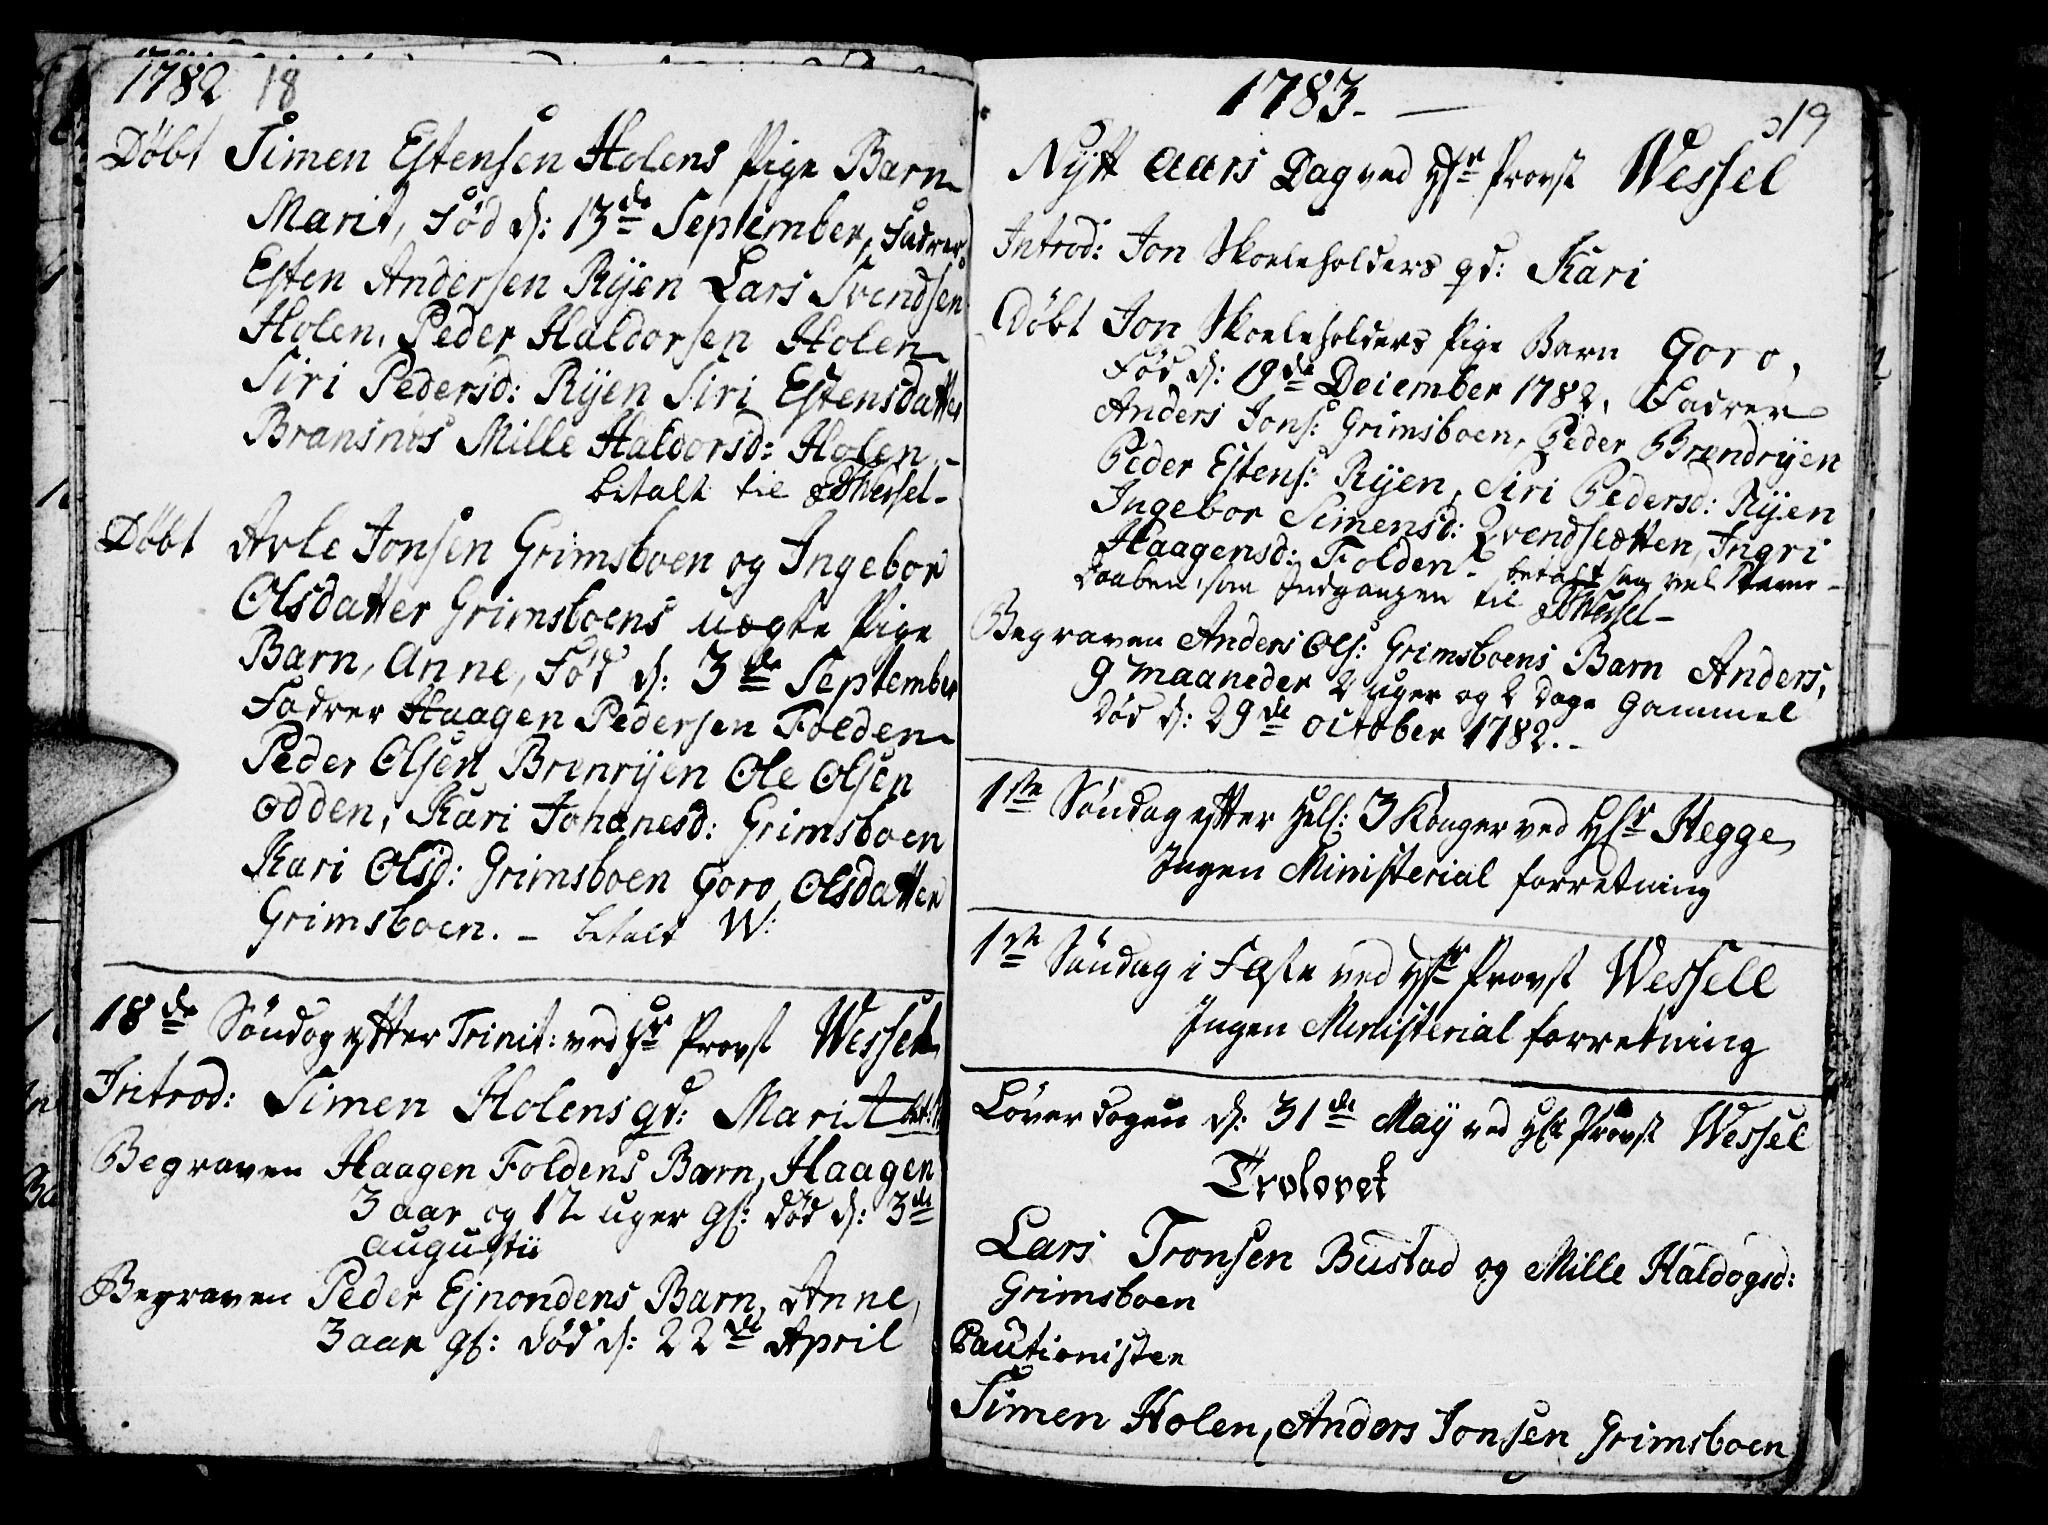 1782 18
Døbt Simen Estensen Holens Pige Barn
Marit, Fød d: 13de September, Fadrer
Esten Andersen Ryen Lars Svendsen
Holen, Peder Haldorsen Holen
Siri Pedersd: Ryen Siri Estensdatter
Bransnes Mille Haldorsd: Holen, -
betalt til Wessel -
Døbt Arle Jonsen Grimsboen og Ingebor
Olsdatter Grimsboens uægte Pige
Barn, Anne, Fød d: 3de September
Fadrer Haagen Pedersen Folden
Peder Olsen Brenryen Ole Olsen
Odden, Kari Johanesd: Grimsboen
Kari Olsd: Grimsboen Goro Olsdatter
Grimsboen. - betalt W:
18de Søndag efter Trinit: ved Hr Provst Wessel
Introd: Simen Holens qd: Marit bet:
Begraven Haagen Foldens Barn, Haagen
3 aar og 12 uger gl: død d: 3de
Augustii
Begraven Peder Ejnondens Barn, Anne,
3 aar gl: død d: 22de April
1783. -
19
Nytt Aars Dag ved Hr Provst Wessel
Introd: Jon Skoeleholders qd: Kari
Døbt Jon Skoeleholders Pige Barn Goro,
Fød d: 19de December 1782, Fadrer
Anders Jons: Grimsboen, Peder Brendryen
Peder Estens: Ryen, Siri Pedersd: Ryen
Ingebor Simensd: Qvendsletten, Ingri
Haagensd: Folden - betalt saa vel
Daaben, som Indgangen til Wessel -
Begraven Anders Ols: Grimsboens Barn Anders,
9 maaneder 2 uger og 2 dage Gammel
død d: 29de October 1782. -
1ste Søndag efter Hel: 3 Konger ved Hr Hegge
Ingen Ministerial forretning
1ste Søndag i Faste ved Hr Provst Wessell
Ingen Ministerial forretning
Løverdagen d: 31de May ved Hr Provst Wessel
Trolovet
Lars Tronsen Bustad og Mille Haldogsd:
Grimsboen
Cautionister
Simen Holen, Anders Jonsen Grimsboen